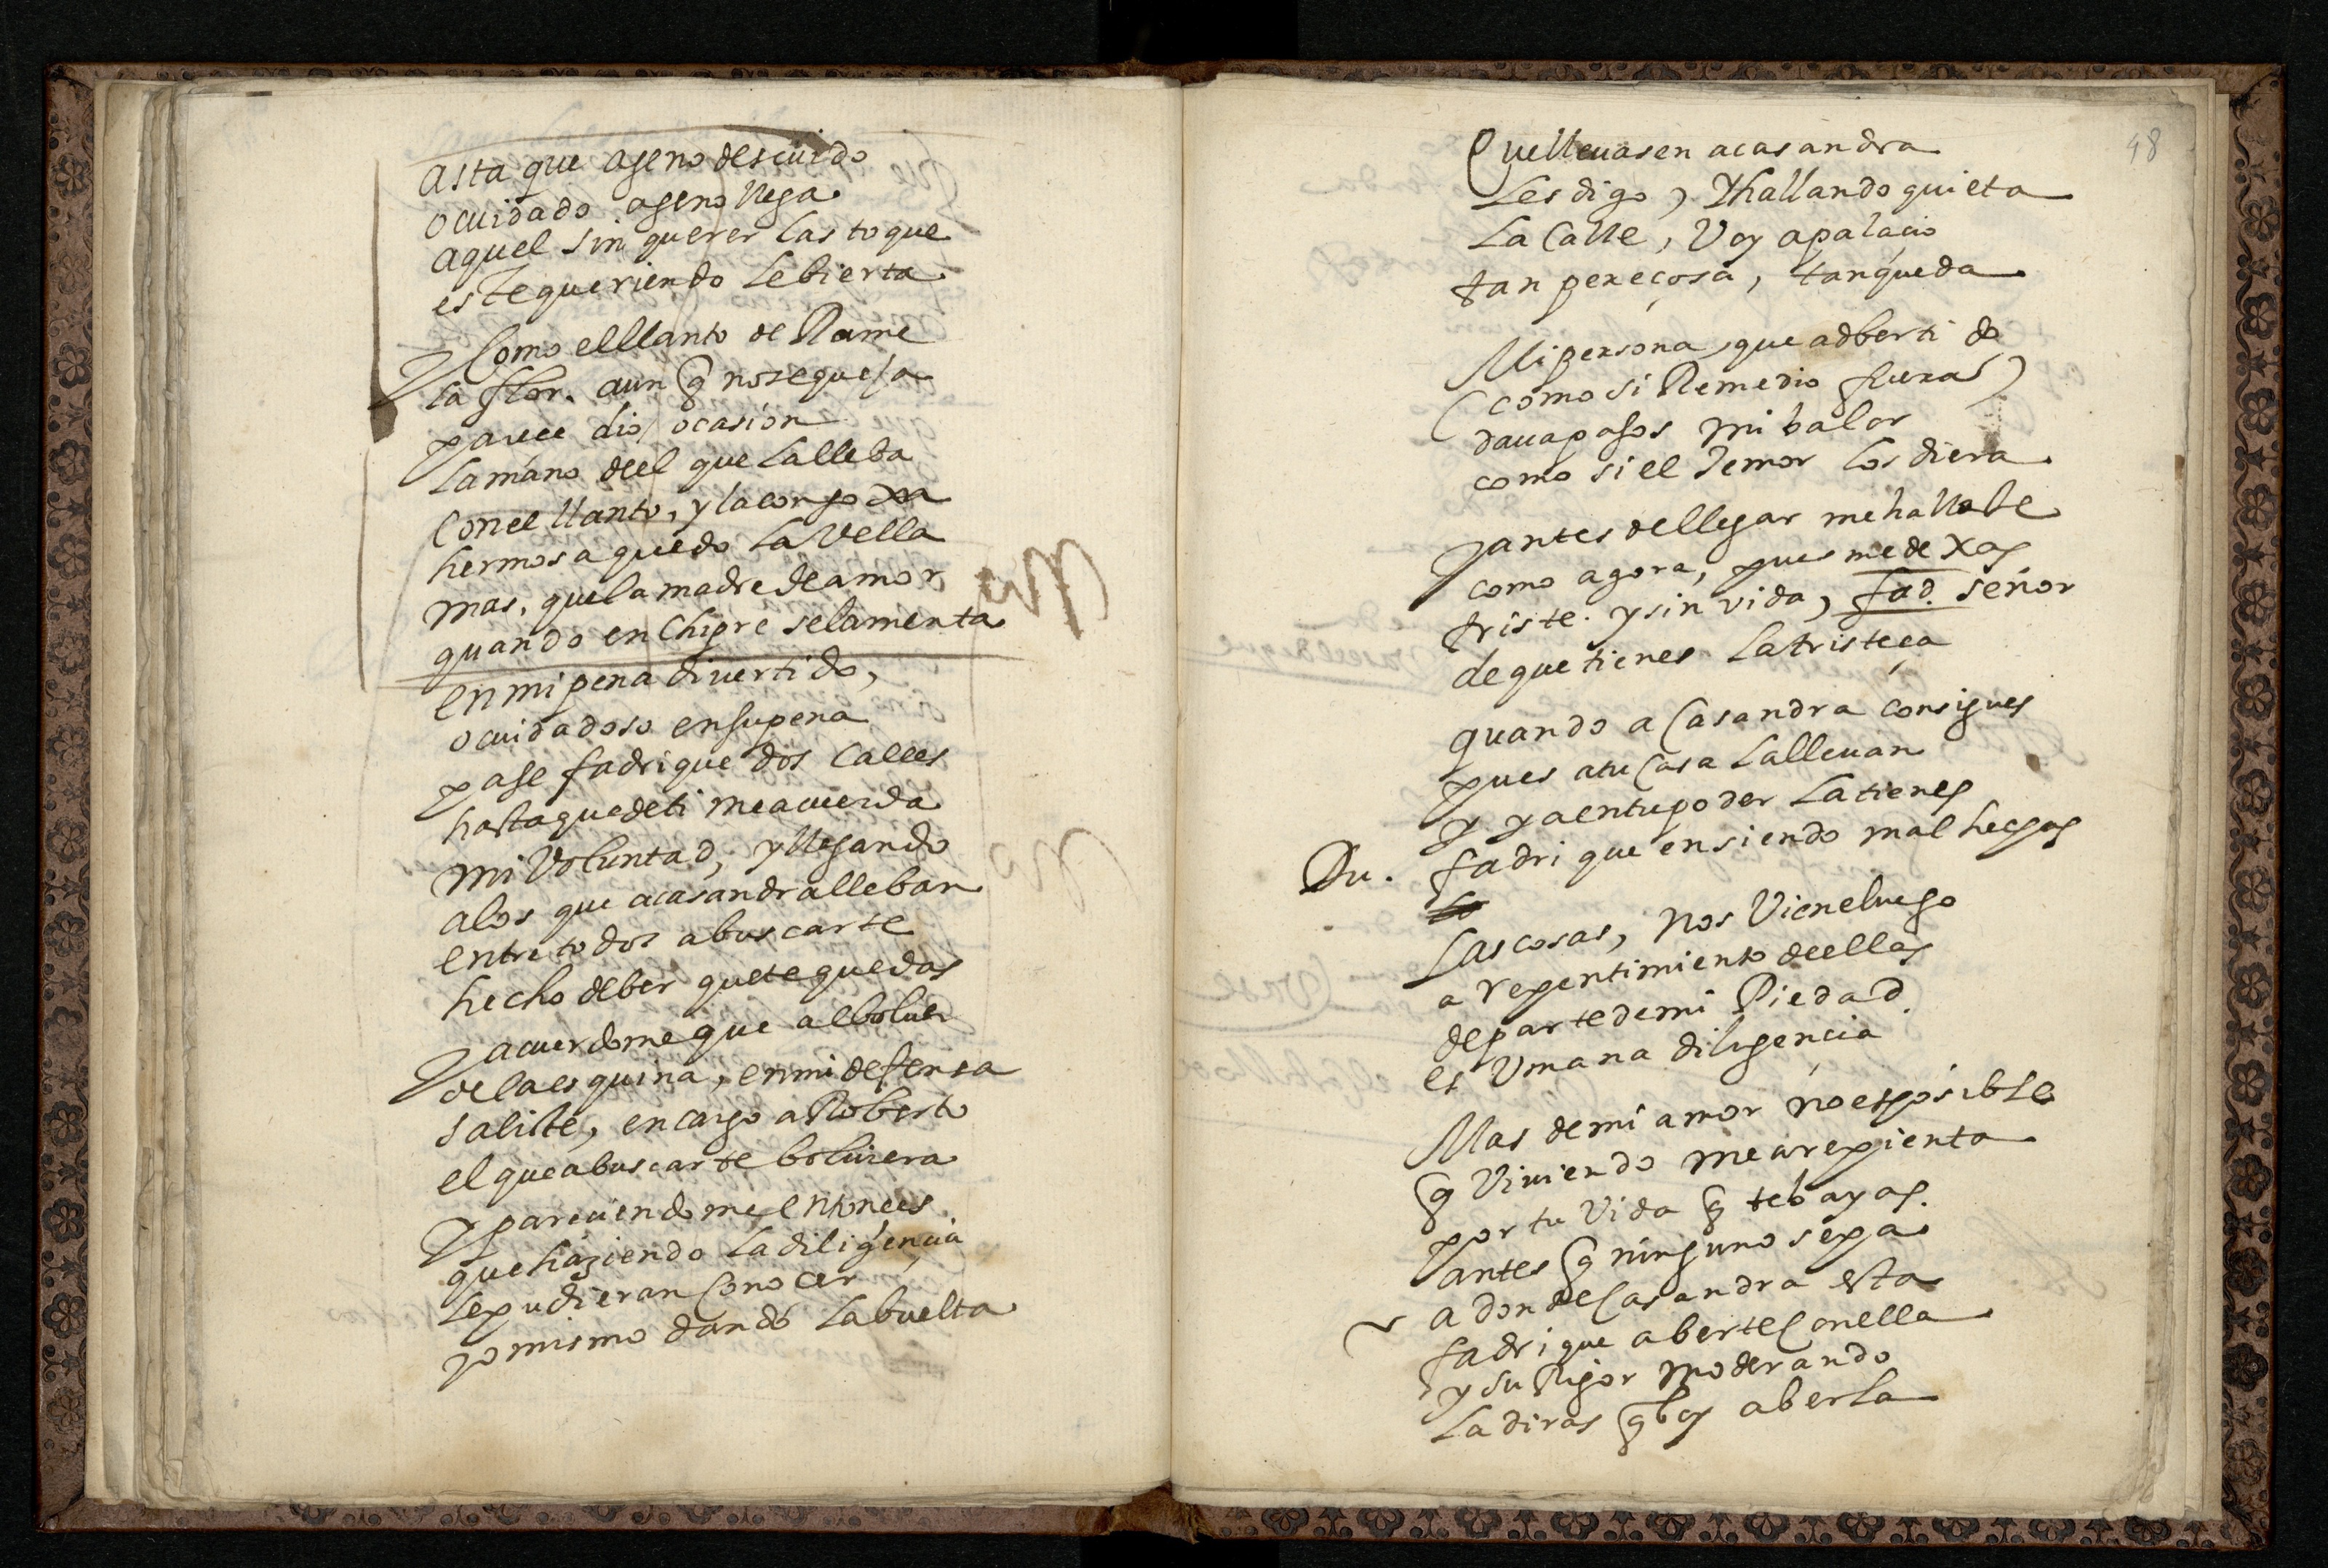 asta que ageno descuido
o cuidado ageno llega
aquel sin querer las toque
este queriendo le bierta
Y Como el llanto de Rame
la flor. aun q̃ no se queja
parece dio ocasion
la mano de el que la lleba
Con el llanto, y la congoxa
hermosa quedo la Vella
mas, que la madre de amor
quando en Chipre se lamenta
No
en mi pena divertido,
o cuidadoso en su pena
pase fadrique dos Calles
hasta que de ti me acuerda
mi Voluntad, y llegando
a los que a casandra lleban
entre todos a buscarte
hecho de ber que te quedas
Y acuerdome que al bolver
de la esquina, en mi defensa
saliste, encargo a Roberto
el que a buscarte bolviera
Y pareciendome entonces
que haziendo la diligencia
le pudieran Conocer
yo mismo dando la buelta
No
48
Que llevasen a casandra
les digo, Y hallando quieta
la Calle, Voy a palacio
tan pereçosa, tan queda
Mi persona, que adbertido
(como si Remedio fueras)
dava pasos mi balor
como si el Temor los diera
Y antes de llegar me hallaste
como agora, pues me dexas
triste. y sin vida, fad. señor
de que tienes la tristeça
quando a Casandra consigues
pues a tu Casa la llevan
y ya en tu poder la tienes
Du. fadrique en siendo mal hechas
las cosas, nos Viene luego
arepentimiento de ellas
de parte de mi Piedad
es Vmana diligencia
Mas de mi amor no es posible
q̃ Viviendo me arepienta
por tu Vida q̃ te bayas.
antes q̃ ninguno sepa
a donde Casandra esta
fadrique a berte Con ella
y su Rigor moderando
la diras q̃ boy a berla